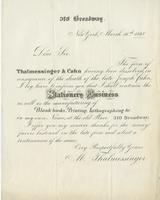 310 Broadway.
New York, March 16th 1868
Dear Sir
The firm of
Thalmessinger & Cahn having been dissolved in
consequence of the death of the late Joseph Cahn,
I beg leave to inform you that I shall continue the
Stationery Business
as well as the manufacturing of
Blank books, Printing, Lithographing &c
in my own Name, at the old Place 310 Broadway.
I offer you my sincere thanks for the many
favors bestowed on the late firm and solicit a
continuance of the same.
Very Respectfully Yours
M. Thalmessinger